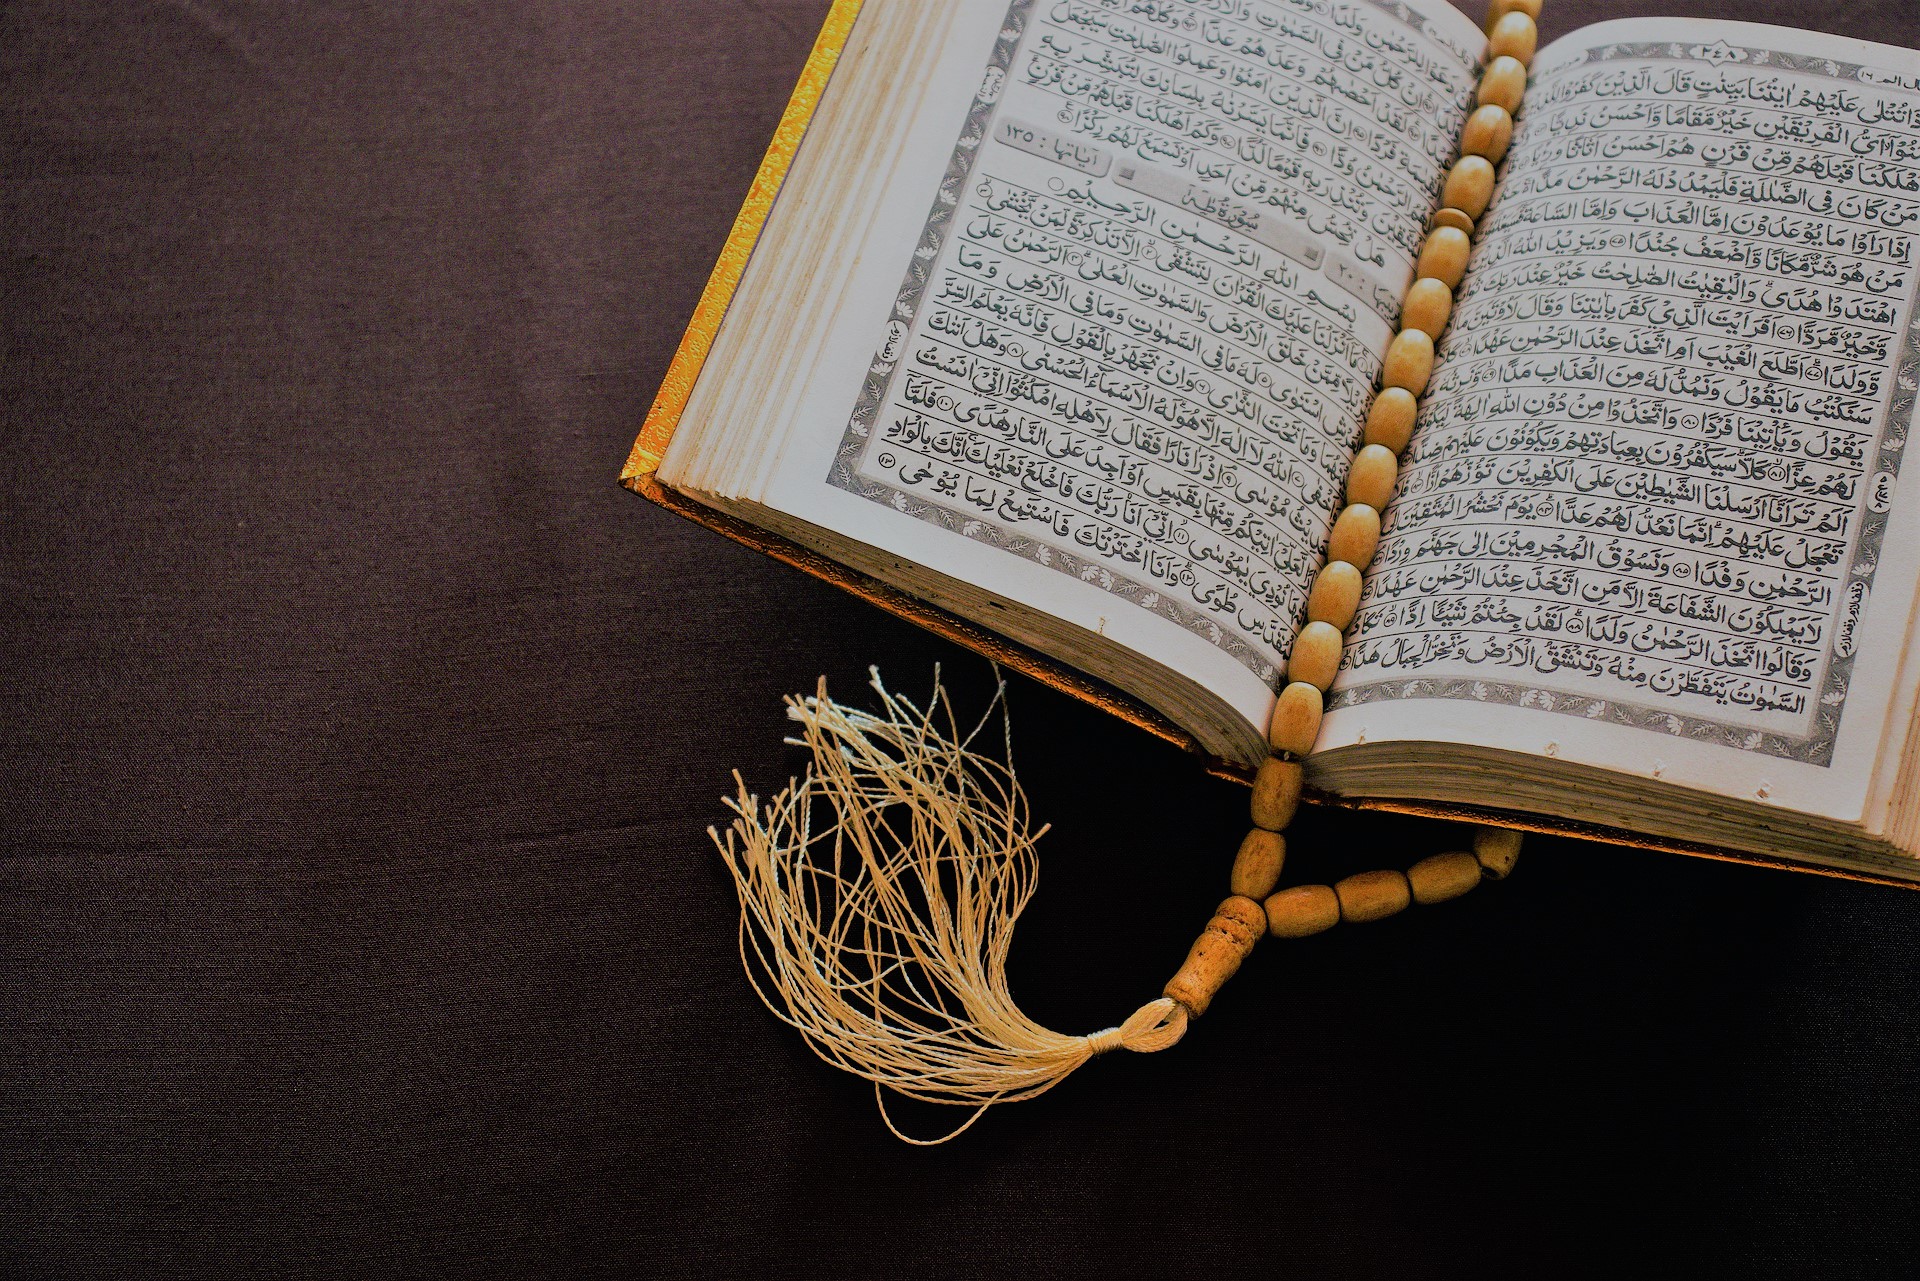 قال الم ١٦
٢٤٨
تُتْلٰى عَلَيْهِمْ اٰيٰتُنَا بَيِّنٰتٍ قَالَ الَّذِيْنَ كَفَرُوْا
اَيُّ الْفَرِيْقَيْنِ خَيْرٌ مَّقَامًا وَّاَحْسَنُ نَدِيًّا
اَهْلَكْنَا قَبْلَهُمْ مِّنْ قَرْنٍ هُمْ اَحْسَنُ اَثَاثًا وَّرِءْيًا
مَنْ كَانَ فِى الضَّلٰلَةِ فَلْيَمْدُدْ لَهُ الرَّحْمٰنُ مَدًّا
اِذَا رَاَوْا مَا يُوْعَدُوْنَ اِمَّا الْعَذَابَ وَاِمَّا السَّاعَةَ
مَنْ هُوَ شَرٌّ مَّكَانًا وَّاَضْعَفُ جُنْدًا ۝٧٥ وَيَزِيْدُ اللّٰهُ الَّذِيْنَ
اهْتَدَوْا هُدًى ؕ وَالْبٰقِيٰتُ الصّٰلِحٰتُ خَيْرٌ عِنْدَ رَبِّكَ
وَّخَيْرٌ مَّرَدًّا ۝٧٦ اَفَرَءَيْتَ الَّذِيْ كَفَرَ بِاٰيٰتِنَا وَقَالَ لَاُوْتَيَنَّ مَا
وَّوَلَدًا ۝٧٧ اَطَّلَعَ الْغَيْبَ اَمِ اتَّخَذَ عِنْدَ الرَّحْمٰنِ عَهْدًا
سَنَكْتُبُ مَا يَقُوْلُ وَنَمُدُّ لَهٗ مِنَ الْعَذَابِ مَدًّا ۝٧٩ وَّنَرِثُهٗ
يَقُوْلُ وَيَاْتِيْنَا فَرْدًا ۝٨٠ وَاتَّخَذُوْا مِنْ دُوْنِ اللّٰهِ اٰلِهَةً لِّيَكُوْنُوْا
لَهُمْ عِزًّا ۝٨١ كَلَّا ؕ سَيَكْفُرُوْنَ بِعِبَادَتِهِمْ وَيَكُوْنُوْنَ عَلَيْهِمْ ضِدًّا
اَلَمْ تَرَ اَنَّا اَرْسَلْنَا الشَّيٰطِيْنَ عَلَى الْكٰفِرِيْنَ تَؤُزُّهُمْ اَزًّا
تَعْجَلْ عَلَيْهِمْ ؕ اِنَّمَا نَعُدُّ لَهُمْ عَدًّا ۝٨٤ يَوْمَ نَحْشُرُ الْمُتَّقِيْنَ اِلَى
الرَّحْمٰنِ وَفْدًا ۝٨٥ وَّنَسُوْقُ الْمُجْرِمِيْنَ اِلٰى جَهَنَّمَ وِرْدًا
لَا يَمْلِكُوْنَ الشَّفَاعَةَ اِلَّا مَنِ اتَّخَذَ عِنْدَ الرَّحْمٰنِ عَهْدًا
وَقَالُوا اتَّخَذَ الرَّحْمٰنُ وَلَدًا ۝٨٨ لَقَدْ جِئْتُمْ شَيْئًا اِدًّا ۝٨٩ تَكَادُ
السَّمٰوٰتُ يَتَفَطَّرْنَ مِنْهُ وَتَنْشَقُّ الْاَرْضُ وَتَخِرُّ الْجِبَالُ هَدًّا
دَعَوْا لِلرَّحْمٰنِ وَلَدًا
اِنْ كُلُّ مَنْ فِى السَّمٰوٰتِ وَالْاَرْضِ
لَقَدْ اَحْصٰىهُمْ وَعَدَّهُمْ عَدًّا ۝٩٤ وَكُلُّهُمْ اٰتِيْهِ
فَرْدًا ۝٩٥ اِنَّ الَّذِيْنَ اٰمَنُوْا وَعَمِلُوا الصّٰلِحٰتِ سَيَجْعَلُ
الرَّحْمٰنُ وُدًّا ۝٩٦ فَاِنَّمَا يَسَّرْنٰهُ بِلِسَانِكَ لِتُبَشِّرَ بِهِ
وَتُنْذِرَ بِهٖ قَوْمًا لُّدًّا ۝٩٧ وَكَمْ اَهْلَكْنَا قَبْلَهُمْ مِّنْ قَرْنٍ
هَلْ تُحِسُّ مِنْهُمْ مِّنْ اَحَدٍ اَوْ تَسْمَعُ لَهُمْ رِكْزًا ۝٩٨
٢٠ : سُوْرَةُ طٰهٰ اٰيَاتُهَا : ١٣٥
بِسْمِ اللّٰهِ الرَّحْمٰنِ الرَّحِيْمِ
مَا اَنْزَلْنَا عَلَيْكَ الْقُرْاٰنَ لِتَشْقٰى ۝٢ اِلَّا تَذْكِرَةً لِّمَنْ يَّخْشٰى ۝٣
مِّمَّنْ خَلَقَ الْاَرْضَ وَالسَّمٰوٰتِ الْعُلٰى ۝٤ اَلرَّحْمٰنُ عَلَى
اسْتَوٰى ۝٥ لَهٗ مَا فِى السَّمٰوٰتِ وَمَا فِى الْاَرْضِ وَمَا
وَمَا تَحْتَ الثَّرٰى ۝٦ وَاِنْ تَجْهَرْ بِالْقَوْلِ فَاِنَّهٗ يَعْلَمُ السِّرَّ
اَللّٰهُ لَا اِلٰهَ اِلَّا هُوَ ؕ لَهُ الْاَسْمَآءُ الْحُسْنٰى ۝٨ وَهَلْ اَتٰىكَ
مُوْسٰى ۝٩ اِذْ رَاٰ نَارًا فَقَالَ لِاَهْلِهِ امْكُثُوْا اِنِّيْ اٰنَسْتُ
لَّعَلِّيْ اٰتِيْكُمْ مِّنْهَا بِقَبَسٍ اَوْ اَجِدُ عَلَى النَّارِ هُدًى ۝١٠ فَلَمَّا
نُوْدِيَ يٰمُوْسٰى ۝١١ اِنِّيْ اَنَا رَبُّكَ فَاخْلَعْ نَعْلَيْكَ ۚ اِنَّكَ بِالْوَادِ
الْمُقَدَّسِ طُوًى ۝١٢ وَاَنَا اخْتَرْتُكَ فَاسْتَمِعْ لِمَا يُوْحٰى ۝١٣